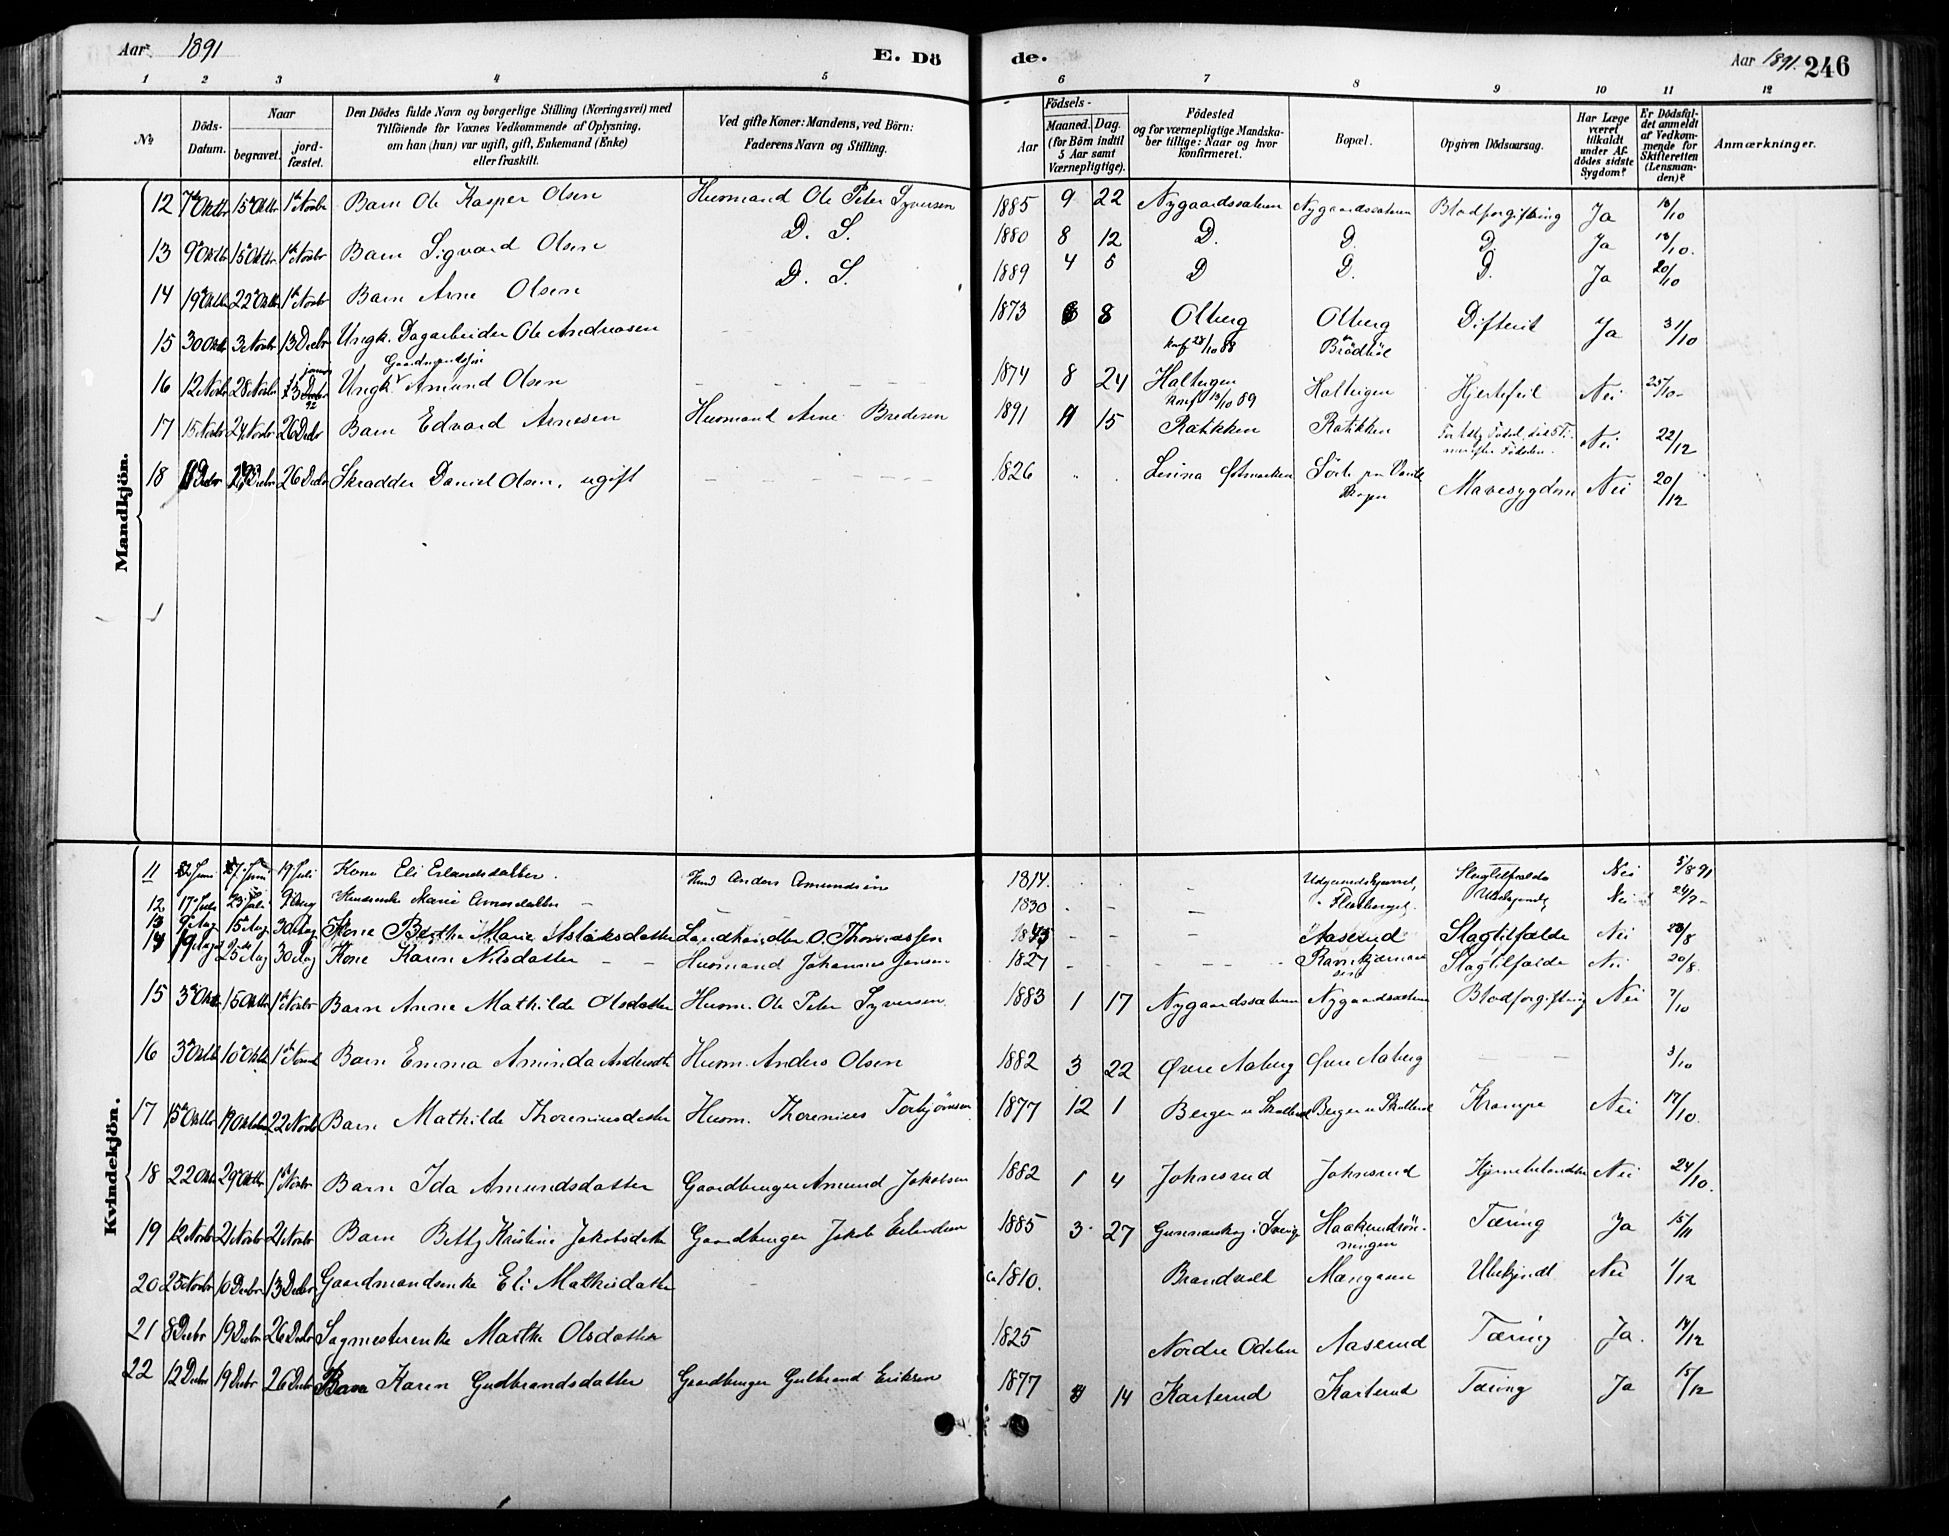 Aar 1891 E. Dö de. Aar 1891. 246
1 2 3 4 5 6 7 8 9 10 11 12
No
Döds-Datum.
Naar
begravet.
jord-fæstet.
Den Dödes fulde Navn og borgerlige Stilling (Næringsvei) med
Tilföiende for Voxnes Vedkommende af Oplysning,
om han (hun) var ugift, gift, Enkemand (Enke)
eller fraskilt.
Ved gifte Koner: Mandens, ved Börn:
Faderens Navn og Stilling.
Födsels-
Aar
Maaned. Dag.
(for Börn indtil
5 Aar samt
Værnepligtige).
Födested
og for værnepligtige Mandska-
ber tillige: Naar og hvor
konfirmeret.
Bopæl.
Opgiven Dödsaarsag.
Har Læge
været
tilkaldt
under Af-
dödes sidste
Sygdom?
Er Dödsfal-
det anmeldt
af Vedkom-
mende for
Skifteretten
(Lensman-
den)?
Anmærkninger.
Mandkjön.
12 7de Oktbr 15de Oktbr 1ste Novbr Barn Ole Kasper Olsen Husmand Ole Peter Syversen 1885 9 22 Nygaardssæteren Nygaardssæteren Blodforgiftning Ja 18/10
13 9de Oktbr 15de Oktbr 1ste Novbr Barn Sigvard Olsen D. S. 1880 8 12 D. D. D. Ja 18/10.
14 19de Oktbr 22de Oktbr 1ste Novbr Barn Arne Olsen D. S. 1889 4 5 D D. D. Ja 20/10
15 30 Oktbr 3 Novbr 13 Decbr Ungk. Dagarbeider Ole Andreasen 1873 8 Olberg Olberg Difterit Ja 31/10
Konf 28/10 88 Brödböl
Gaardmandssön
16 12 Novbr 28 Novbr 13 Januar 92 Ungk. Amund Olsen 1874 8 24 Halteigen Halteigen Hjertefeil Nei 25/10
Konf. 13/10 89
17 15 Novbr 24 Novbr 26 Decbr Barn Edvard Arnesen Husmand Arne Bredesen 1891 15 Ratikken Ratikken Nei 22/12
18 Decbr Decbr 26 Decbr Skrædder Daniel Olsen, ugift 1826 Mavesygdom Nei 20/12
Kvindekjön.
11 Juni Juni 19 Juli Kone Eli Erlandsdatter. Anders Amundsen 1814. Slagtilfælde Nei 5/8 91
12 17 Juli 23 Juli 9 Aug Marie Arnesdatter 1830 Flesberget Ubekjendt Nei 24/7
13 9de Aug 15de Aug 30 Aug Kone Berthe Marie Aslaksdatter Landhandler O. Thomassen Aaserud Slagtilfælde Nei 28/8
14 19 Aug 25 Aug 30 Aug Kone Karen Nilsdatter Husmand Johannes Jensen 1827 Slagtilfælde Nei 20/8.
15 3de Oktbr 15 Oktbr 1ste Novbr Barn Anne Mathilde Olsdatter Husm. Ole Peter Syversen 1883 1 17 Nygaardssæteren Nygaardssæteren Blodforgiftning Nei 7/10
16 3de Oktbr 10de Oktbr 1ste Novbr Barn Emma Aminda Andersdtr Husm. Anders Olsen 1882 3 22 Øvre Aaberg Øvre Aaberg 3/10
17 15de Oktbr 19 Oktober 22 Novbr Barn Mathilde Thoreniusdatter Husm. Thorenius Torbjörnsen 1877 12 1 Berger u Skullerud Berger u Skullerud Krampe Nei 17/10.
18 22 Oktbr 29 Oktbr 1ste Novbr Barn Ida Amundsdatter Gaardbruger Amund Jakobsen 1882 1 4 Johnsrud Johnsrud Hjernebetændelse Nei 24/10.
19 12 Novbr 21 Novbr 21 Novbr Barn Betty Kristine Jakobsdatter Gaardbruger Jakob Erlandsen 1885 3 27 Gunnarskog i Sverige Haakendsrönningen Tæring Ja 15/11
20 25 Novbr 10 Decbr 13 Decbr Gaardmandsenke Eli Mathisdatter ca 1810. Brandvold Mangaarn Ubekjendt Nei 1/12
21 8 Decbr 19 Decbr 26 Decbr Sagmesterenke Marthe Olsdatter 1825 Nordre Odalen Aaserud Tæring Ja. 14/12
22 12 Decbr 19 Decbr 26 Decbr Barn Karen Gudbrandsdatter Gaardbruger Gulbrand Eriksen 1877 14 Karterud Karterud Tæring Ja 15/12